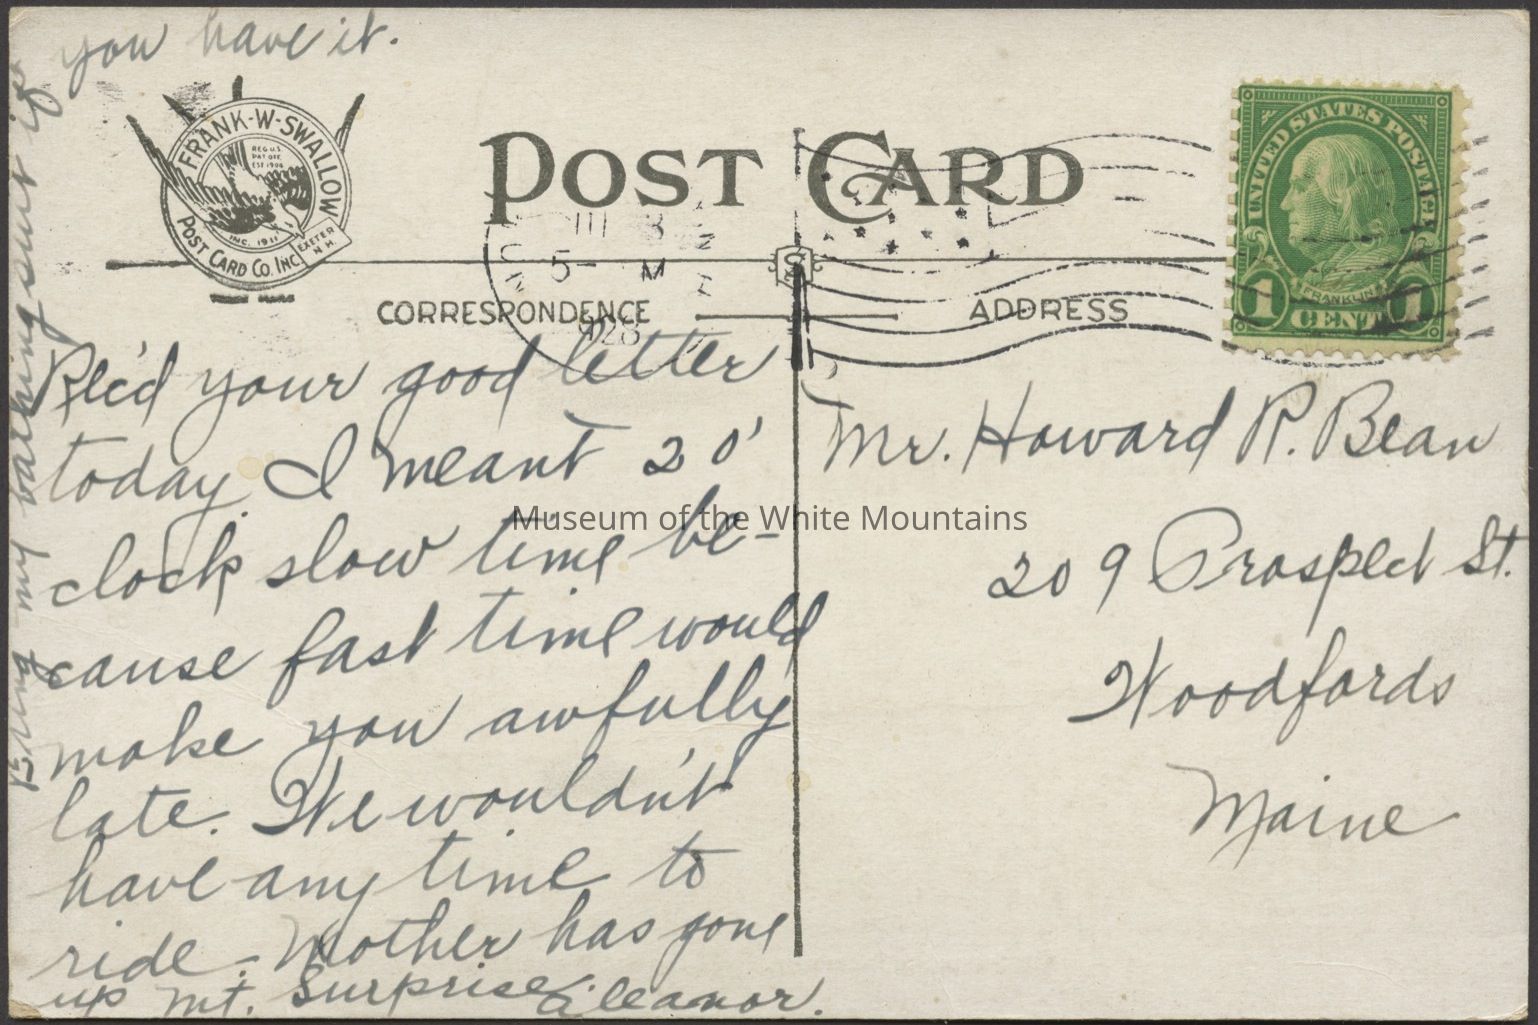 you have it.
FRANK-W-SWALLOW
REG U.S.
PAT OFF.
EST 1904
INC. 1911
POST CARD CO. INC.
EXETER
N.H.
POST CARD
5- M
1928
CORRESPONDENCE
ADDRESS
UNITED STATES POSTAGE
FRANKLIN
1 CENT 1
Rec'd your good letter
today. I meant 20'
clock slow time be-
cause fast time would
make you awfully
late. We wouldn't
have any time to
ride - Mother has gone
up Mt. Surprise. Eleanor.
Bring my bathing suit if
Mr. Howard R. Bean
209 Prospect St.
Woodfords
Maine
Museum of the White Mountains